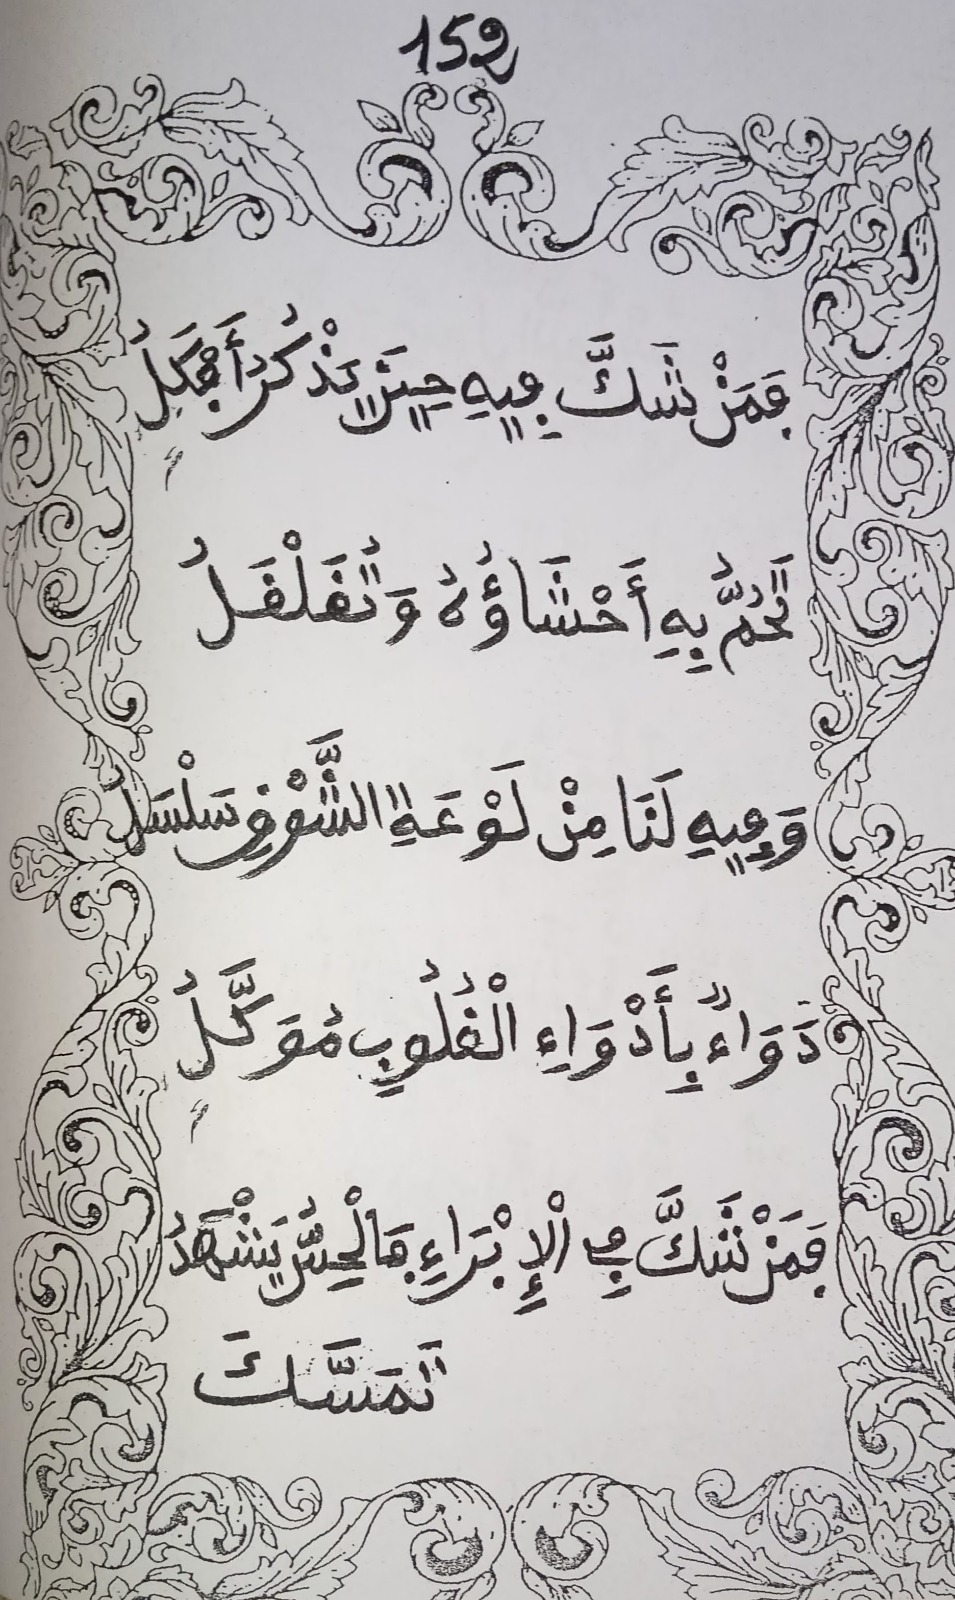 152
فَمَنْ شَكَّ فِيهِ حِينَ يَذْكُرُ أَجْمَلُ
تَحُرُّ بِهِ أَحْشَاؤُهُ وَتُفَلْفَلُ
وَفِيهِ لَنَا مِنْ لَوْعَةِ الشَّوْقِ سَلْسَلُ
دَوَاءٌ بِأَدْوَاءِ الْقُلُوبِ مُوَكَّلُ
فَمَنْ شَكَّ فِي الْإِبْرَاءِ فَالْحِسُّ يَشْهَدُ
تَمَسَّكَ